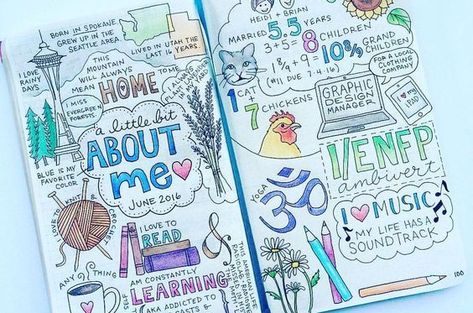 BORN IN SPOKANE
GREW UP IN THE
SEATTLE AREA.
LIVED IN UTAH THE
LAST 16 YEARS.
I LOVE
RAINY
DAYS
THIS
MOUNTAIN
WILL ALWAYS
MEAN
HOME
TO ME
I MISS
EVERGREEN
FORESTS.
a little bit
ABOUT
me
JUNE 2016
BLUE IS MY
FAVORITE
COLOR
I LOVE
KNIT
&
CROCHET
I LOVE TO
READ
&
ANY
THING
AM CONSTANTLY
LEARNING
AKA ADDICTED TO
PODCASTS &
HEIDI + BRIAN
MARRIED 5.5 YEARS
3+5= 8 CHILDREN
10 GRAND
CHILDREN
(WILL DUE 7-4-16)
1 CAT
+
7 CHICKENS
GRAPHIC
DESIGN
MANAGER
FOR A LOCAL
CLOTHING
COMPANY
I ❤ my
iPAD
I/ENFP
ambivert
YOGA
ॐ
I ❤ MUSIC
MY LIFE HAS A
SOUNDTRACK
100